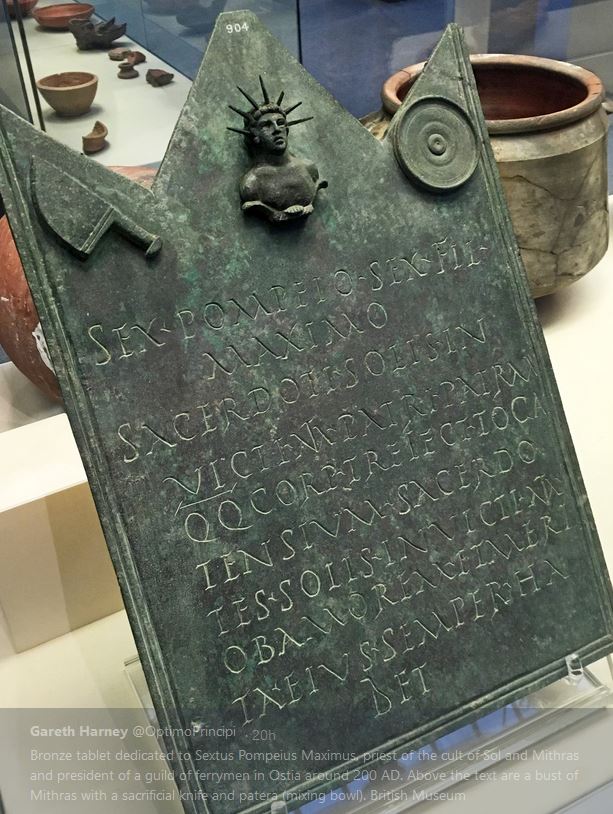 904
SEX·POMPEIO·SEX·FIL·
MAXIMO
SACERDOTI·SOLIS·IN
VICTI·MT·PATRI·PATRVM
QQ CORP·TREIECT·TOGA
TENSIVM·SACERDO
TES·SOLIS·INVICTI·MT
OB AMOREM·ET·MERI
TA EIVS·SEMPER·HA
BET
Gareth Harney @OptimoPrincipi · 20h
Bronze tablet dedicated to Sextus Pompeius Maximus, priest of the cult of Sol and Mithras
and president of a guild of ferrymen in Ostia around 200 AD. Above the text are a bust of
Mithras with a sacrificial knife and patera (mixing bowl). British Museum